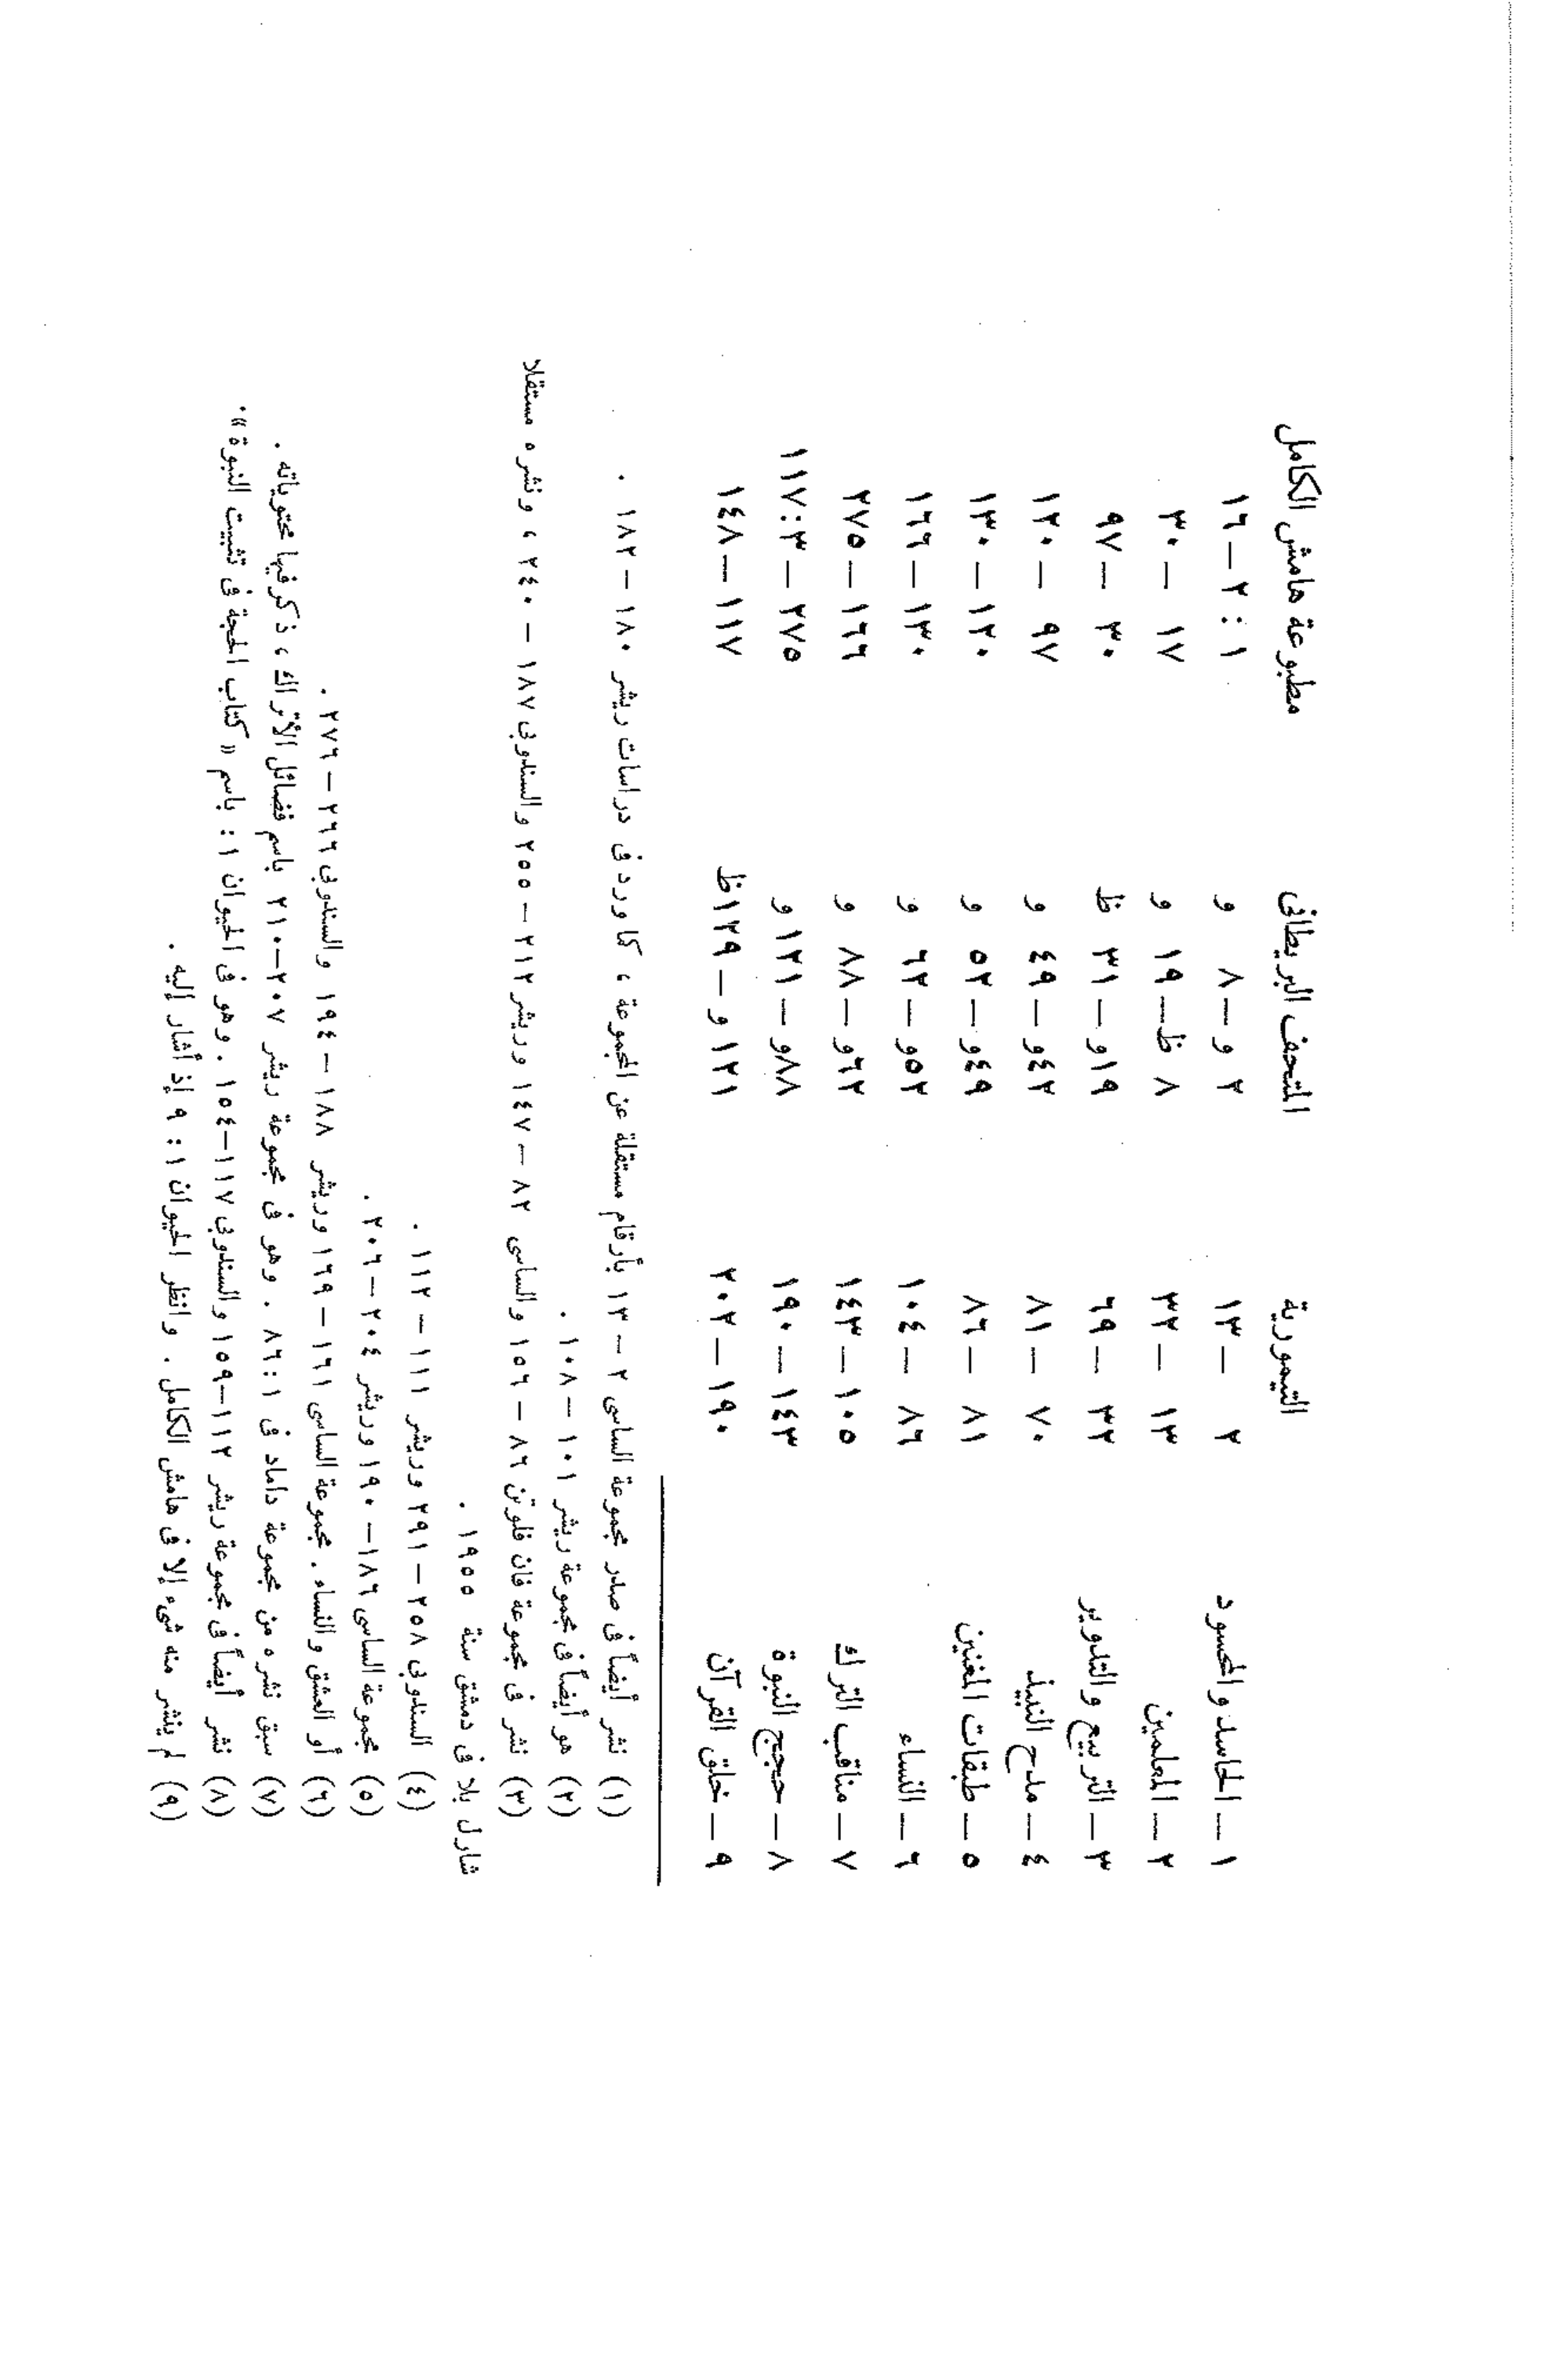 التيمورية المتحف البريطانى مطبوعة هامش الكامل
١ — الحاسد والمحسود ٢ — ١٣ ٢ و — ٨ و ١ : ٢ — ١٦
٢ — المعلمين ١٣ — ٣٢ ٨ ظ — ١٩ و ١٧ — ٣٠
٣ — التربيع والتدوير ٣٢ — ٦٩ ١٩و — ٣١ ظ ٣٠ — ٩٧
٤ — مدح النبيذ ٧٠ — ٨١ ٤٢و — ٤٩ و ٩٧ — ١٢٠
٥ — طبقات المغنين ٨١ — ٨٦ ٤٩و — ٥٢ و ١٢٠ — ١٣٠
٦ — النساء ٨٦ — ١٠٤ ٥٢و — ٦٢ و ١٣٠ — ١٦٦
٧ — مناقب الترك ١٠٥ — ١٤٣ ٦٢و — ٨٨ و ١٦٦ — ٢٧٥
٨ — حجج النبوة ١٤٣ — ١٩٠ ٨٨و — ١٢١ و ٢٧٥ — ١١٧:٣
٩ — خلق القرآن ١٩٠ — ٢٠٢ ١٢١ و — ١٢٩ظ ١١٧ — ١٤٨
(١) نشر أيضاً فى صدر مجموعة الساسى ٢ — ١٣ بأرقام مستقلة عن المجموعة ، كما ورد فى دراسات ريشر ١٨٠ — ١٨٢ .
(٢) هو أيضاً فى مجموعة ريشر ١٠١ — ١٠٨ .
(٣) نشر فى مجموعة فان فلوتن ٨٦ — ١٥٦ والساسى ٨٢ — ١٤٧ وريشر ٢١٢ — ٢٥٥ والسندوبى ١٨٧ — ٢٤٠ ، ونشره مستقلا
شارل بلا فى دمشق سنة ١٩٥٥ .
(٤) السندوبى ٢٥٨ — ٢٩١ وريشر ١١١ — ١١٢ .
(٥) مجموعة الساسى ١٨٦ — ١٩٠ وريشر ٢٠٤ — ٢٠٦ .
(٦) أو العشق والنساء . مجموعة الساسى ١٦١ — ١٦٩ وريشر ١٨٨ — ١٩٤ والسندوبى ٢٦٦ — ٢٧٦ .
(٧) سبق نشره من مجموعة داماد فى ١ : ٨٦ . وهو فى مجموعة ريشر ٢٠٧—٢١٠ باسم فضائل الأتراك ، ذكر فيها محتوياته .
(٨) نشر أيضاً فى مجموعة ريشر ١١٢—١٥٩ والسندوبى ١١٧—١٥٤ . وهو فى الحيوان ١ : باسم « كتاب الحجة فى تثبيت النبوة » .
(٩) لم ينشر منه شىء إلا فى هامش الكامل . وانظر الحيوان ١ : ٩ إذ أشار إليه .